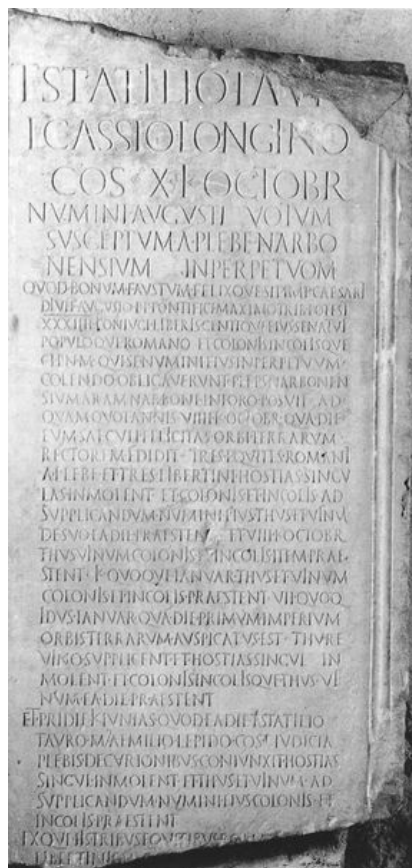 T STATILIO TAV
L CASSIO LONGINO
COS X K OCTOBR
NVMINI AVGVSTI VOTVM
SVSCEPTVM A PLEBE NARBO
NENSIVM INPERPETVOM
QVOD BONVM FAVSTVM FELIXQVE SIT IMP CAESARI
DIVI F AVGVSTO P P PONTIFICI MAXIMO TRIB POTEST
XXXIIII CONIVGI LIBERIS GENTIQVE EIVS SENATVI
POPVLOQVE ROMANO ET COLONIS INCOLISQVE
C I P N M QVI SE NVMINI EIVS INPERPETVVM
COLENDO OBLIGAVERVNT PLEPS NARBONEN
SIVM ARAM NARBONE IN FORO POSVIT AD
QVAM QVOTANNIS VIIII K OCTOBR QVA DIE
EVM SAECVLI FELICITAS ORBI TERRARVM
RECTOREM EDIDIT TRES EQVITES ROMANI
A PLEBE ET TRES LIBERTINI HOSTIAS SINGV
LAS INMOLENT ET COLONIS ET INCOLIS AD
SVPPLICANDVM NVMINI EIVS THVS ET VINVM
DE SVO EA DIE PRAESTENT ET VIIII K OCTOBR
THVS VINVM COLONIS ET INCOLIS ITEM PRAE
STENT K QVOQVE IANVAR THVS ET VINVM
COLONIS ET INCOLIS PRAESTENT VII QVOQ
IDVS IANVAR QVA DIE PRIMVM IMPERIVM
ORBIS TERRARVM AVSPICATVS EST THVRE
VINO SVPPLICENT ET HOSTIAS SINGVL IN
MOLENT ET COLONIS INCOLISQVE THVS VI
NVM EA DIE PRAESTENT
ET PRIDIE K IVNIAS QVOD EA DIE T STATILIO
TAVRO M AEMILIO LEPIDO COS IVDICIA
PLEBIS DECVRIONIBVS CONIVNXIT HOSTIAS
SINGVL INMOLENT ET THVS ET VINVM AD
SVPPLICANDVM NVMINI EIVS COLONIS ET
INCOLIS PRAESTENT
EXQVE HIS TRIBVS EQVITIBVS
LIBERTINIS